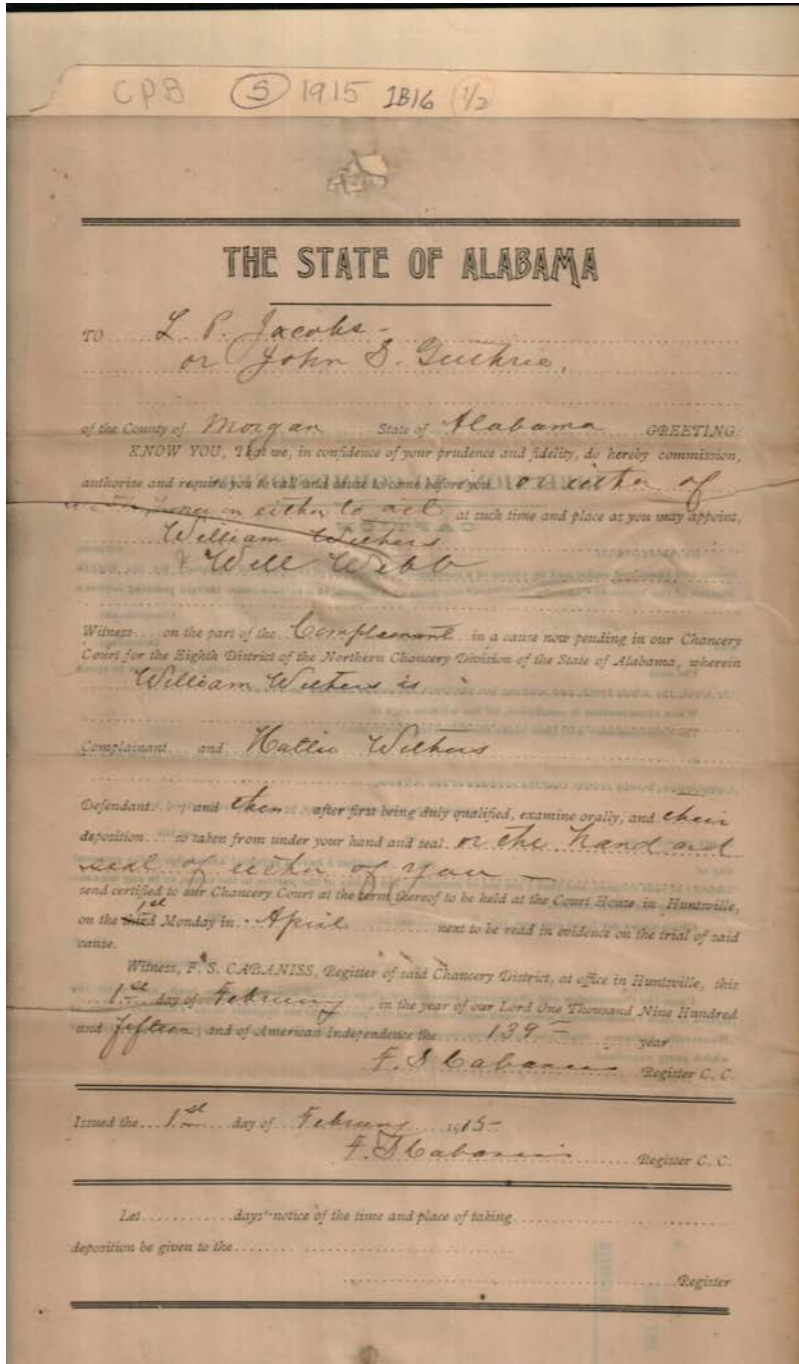 CPB (S) 1915 1B16 (1/2)
THE STATE OF ALABAMA
TO L. P. Jacobs -
or John S. Guthrie,
of the County of Morgan State of Alabama GREETING:
KNOW YOU, That we, in confidence of your prudence and fidelity, do hereby commission,
authorize and require you to call and cause to come before you or either of
you in either to act at such time and place as you may appoint,
William Withers
& Will Webb
Witness on the part of the Complainant in a cause now pending in our Chancery
Court for the Eighth District of the Northern Chancery Division of the State of Alabama, wherein
William Withers is
Complainant and Hattie Withers
Defendant and them after first being duly qualified, examine orally, and their
deposition so taken from under your hand and seal or the hand and
seal of either of you —
send certified to our Chancery Court at the term thereof to be held at the Court House in Huntsville,
on the 1st Monday in April next to be read in evidence on the trial of said
cause.
Witness, F. S. CABANISS, Register of said Chancery District, at office in Huntsville, this
1st day of February, in the year of our Lord One Thousand Nine Hundred
and fifteen, and of American Independence the 139 year.
F. S. Cabaniss Register C. C.
Issued the 1st day of February 1915
F. S. Cabaniss Register C. C.
Let days' notice of the time and place of taking
deposition be given to the
Register